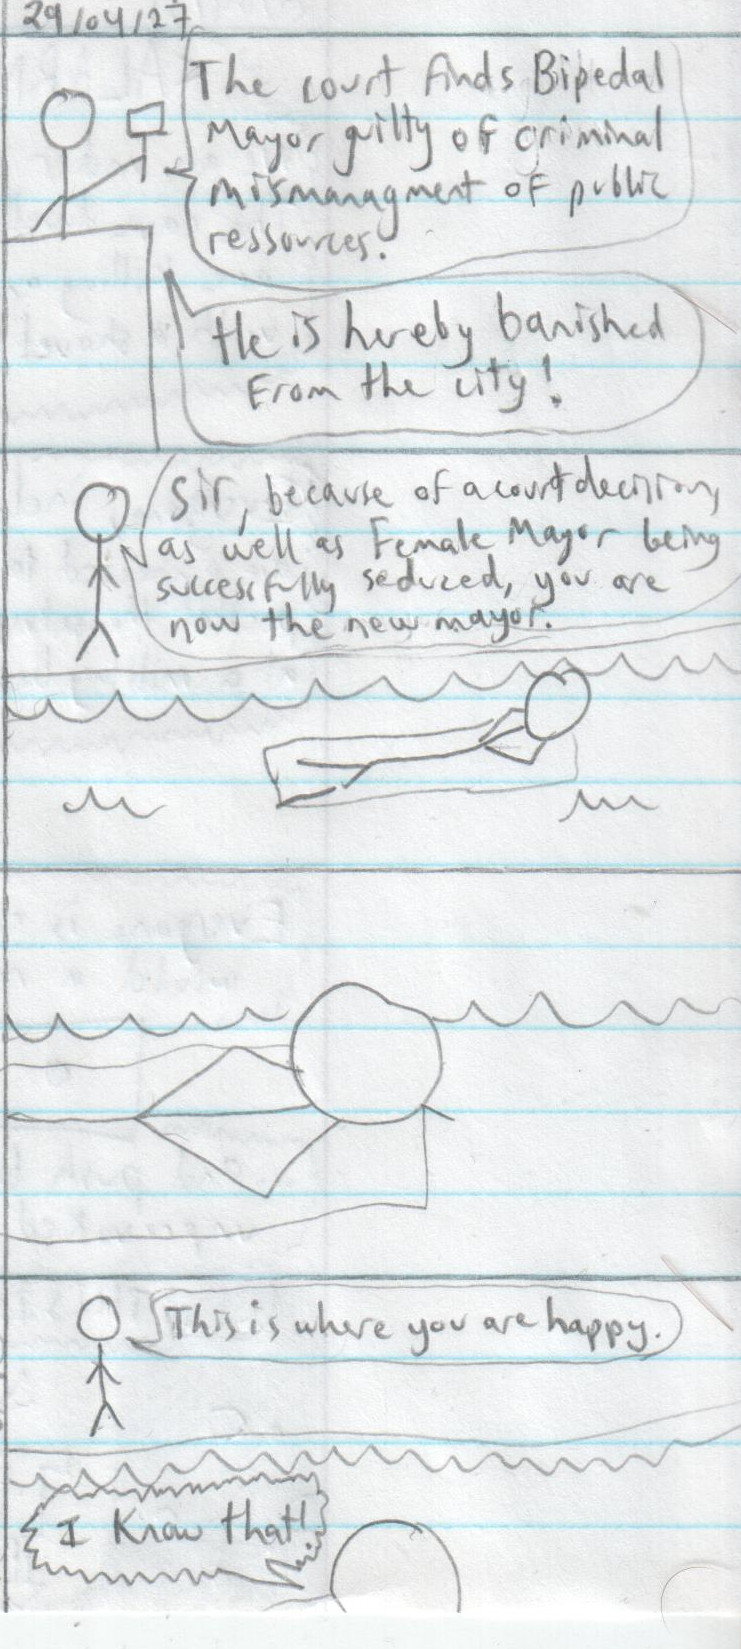 29/04/27
The court finds Bipedal
Mayor guilty of criminal
mismanagment of public
ressources.
He is hereby banished
from the city!
Sir, because of a court decision,
as well as Female Mayor being
successfully seduced, you are
now the new mayor.
This is where you are happy.
I know that!